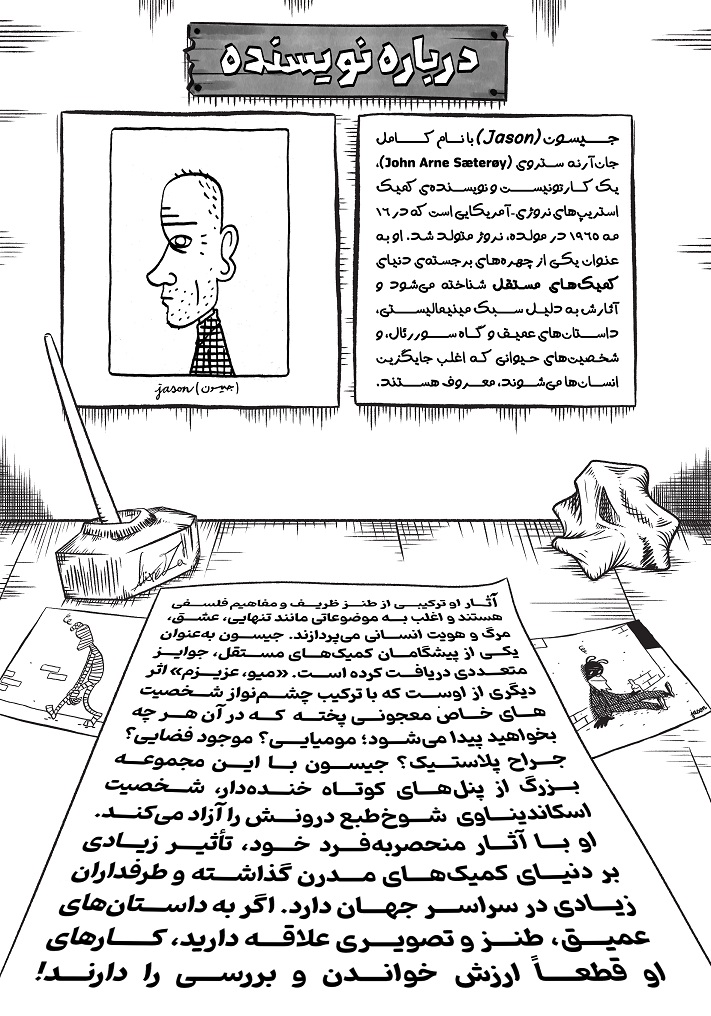 درباره نویسنده
جیسون (Jason) با نام کامل
جان آرنه ستروی (John Arne Sæterøy)،
یک کارتونیست و نویسنده‌ی کمیک
استریپ‌های نروژی-آمریکایی است که در ۱۶
مه ۱۹۶۵ در مولده، نروژ متولد شد. او به
عنوان یکی از چهره‌های برجسته‌ی دنیای
کمیک‌های مستقل شناخته می‌شود و
آثارش به دلیل سبک مینیمالیستی،
داستان‌های عمیق و گاه سوررئال، و
شخصیت‌های حیوانی که اغلب جایگزین
انسان‌ها می‌شوند، معروف هستند.
jason (جیسون)
آثار او ترکیبی از طنز ظریف و مفاهیم فلسفی
هستند و اغلب به موضوعاتی مانند تنهایی، عشق،
مرگ و هویت انسانی می‌پردازند. جیسون به‌عنوان
یکی از پیشگامان کمیک‌های مستقل، جوایز
متعددی دریافت کرده است. «میو، عزیزم» اثر
دیگری از اوست که با ترکیب چشم‌نواز شخصیت
های خاص معجونی پخته که در آن هر چه
بخواهید پیدا می‌شود؛ مومیایی؟ موجود فضایی؟
جراح پلاستیک؟ جیسون با این مجموعه
بزرگ از پنل‌های کوتاه خنده‌دار، شخصیت
اسکاندیناوی شوخ‌طبع درونش را آزاد می‌کند.
او با آثار منحصربه‌فرد خود، تأثیر زیادی
بر دنیای کمیک‌های مدرن گذاشته و طرفداران
زیادی در سراسر جهان دارد. اگر به داستان‌های
عمیق، طنز و تصویری علاقه دارید، کارهای
او قطعاً ارزش خواندن و بررسی را دارند!
jason